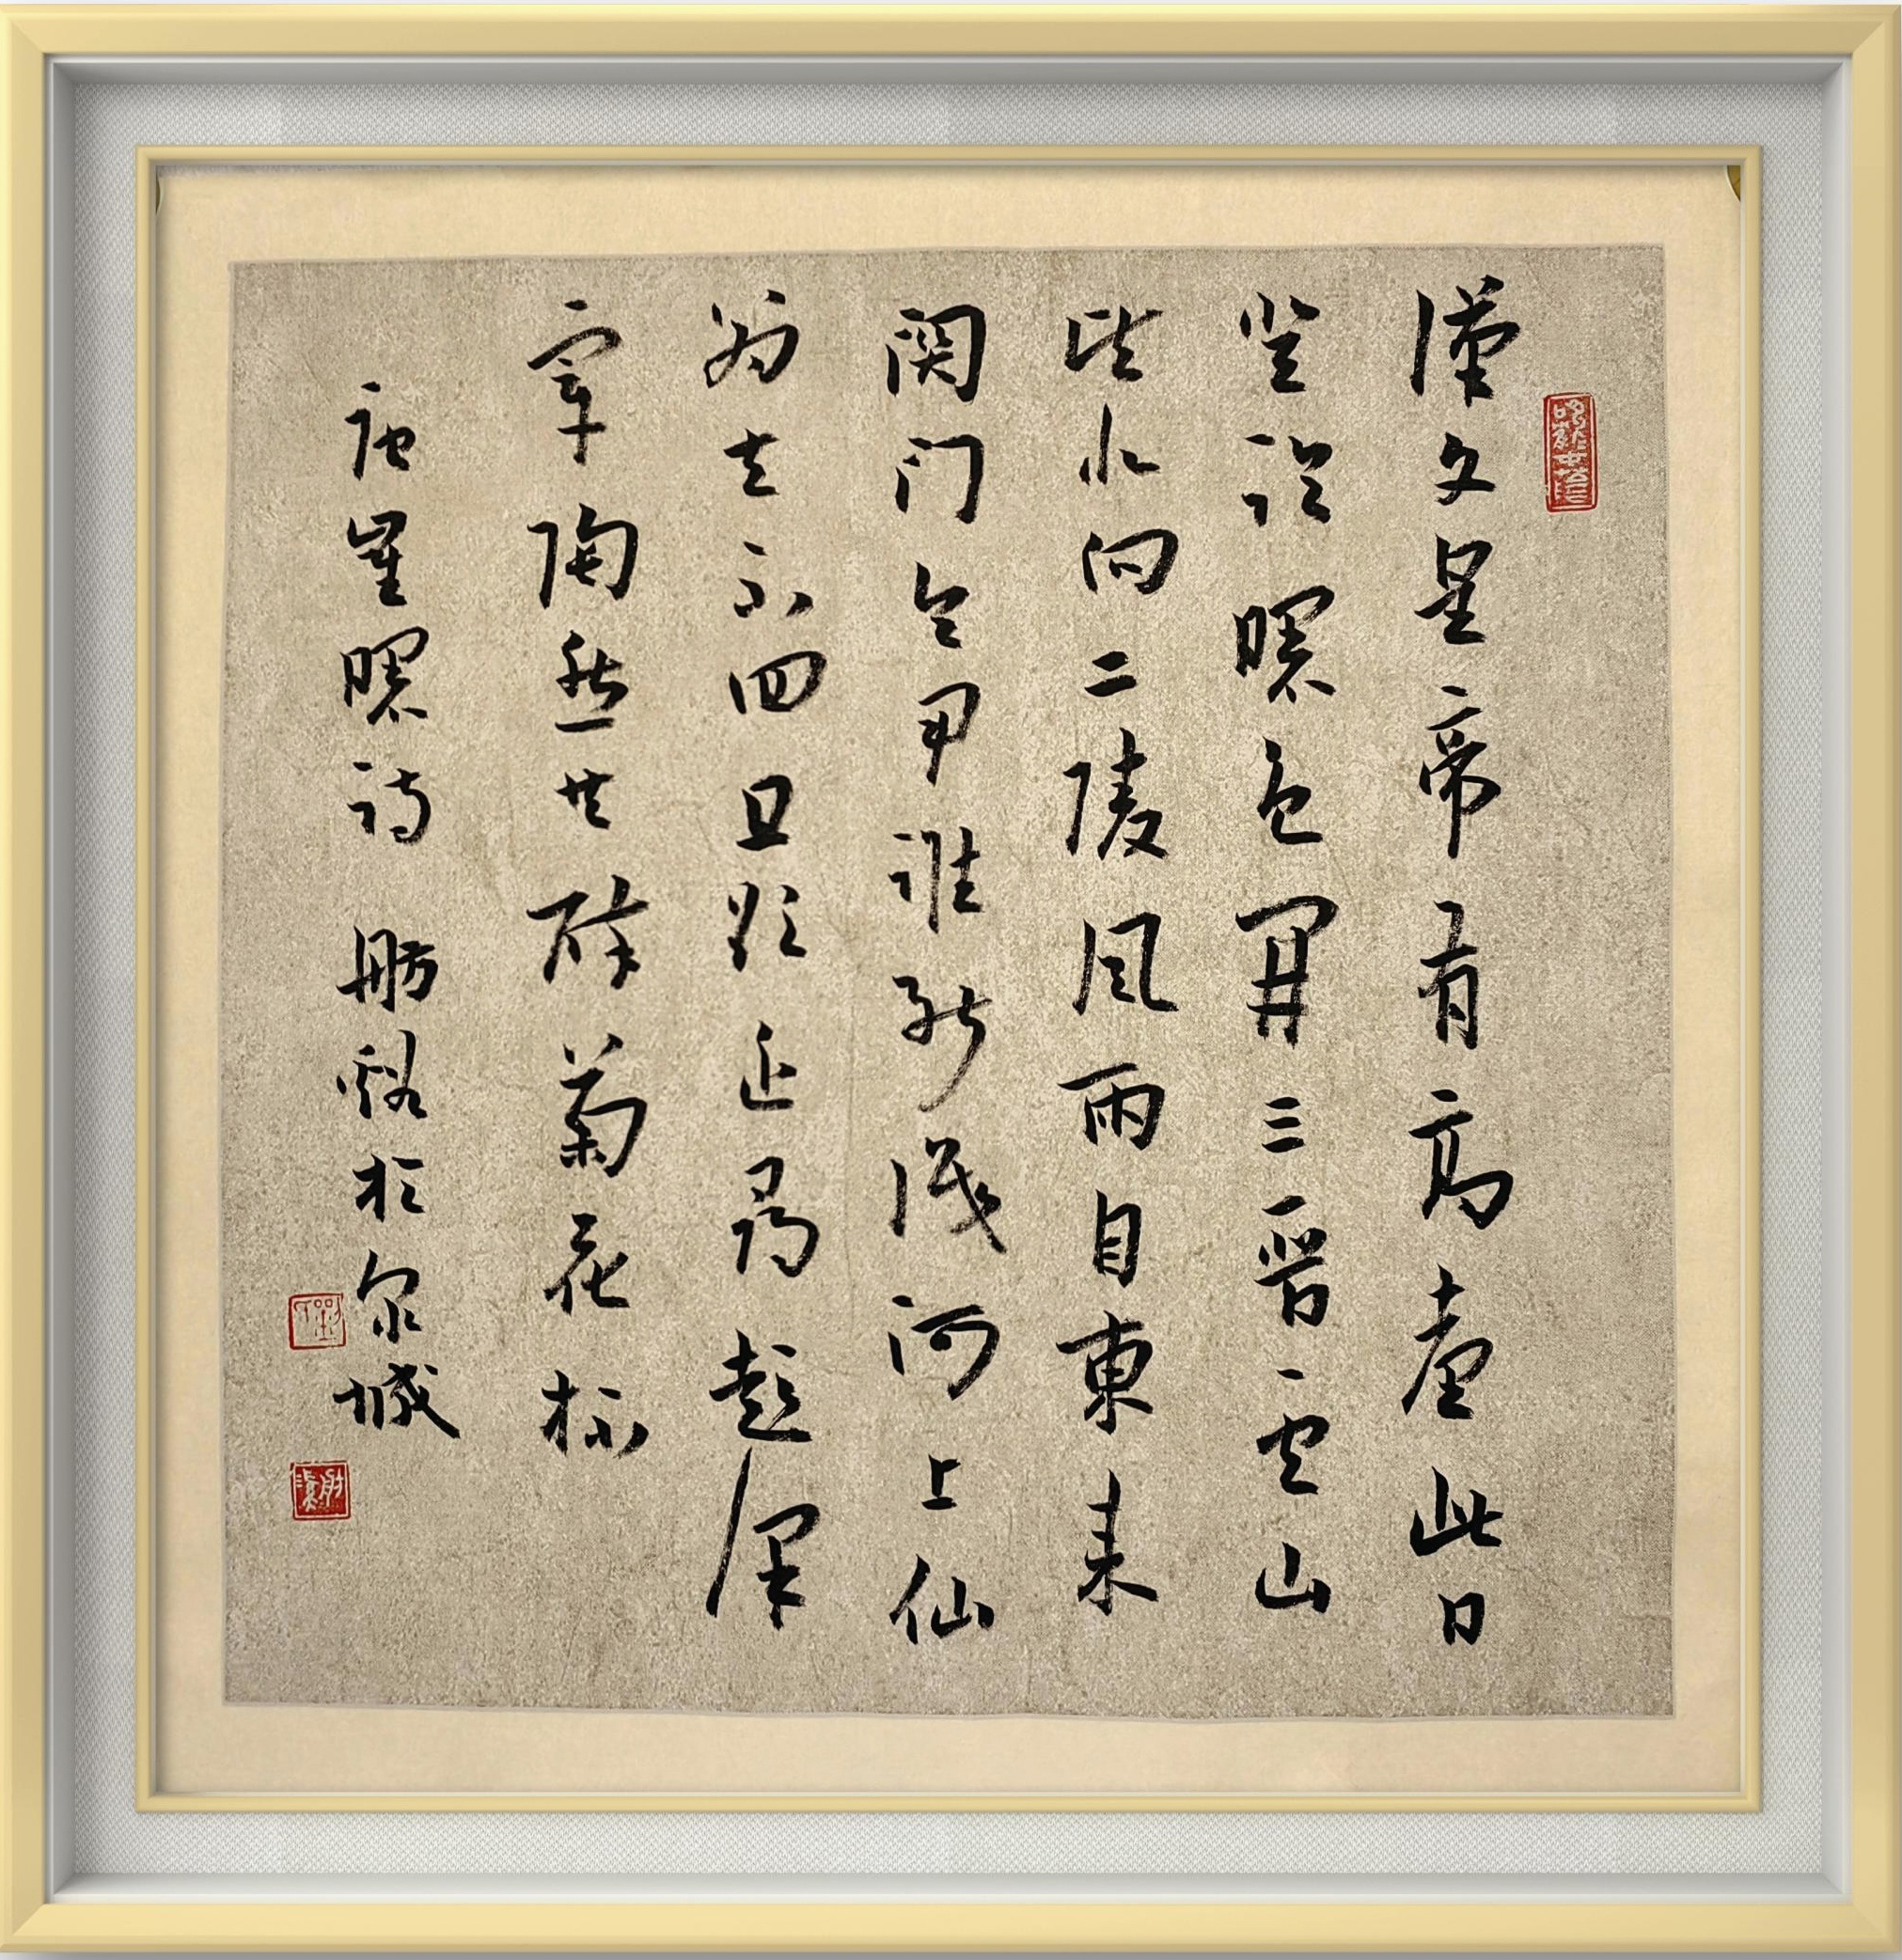 漢文皇帝有高臺此日
登臨曙色開三晉雲山
皆北向二陵風雨自東来
関门令尹誰能識河上仙
翁去不回且欲近尋彭澤
宰陶然共醉菊花杯
唐崔曙詩 舫谿於泉城